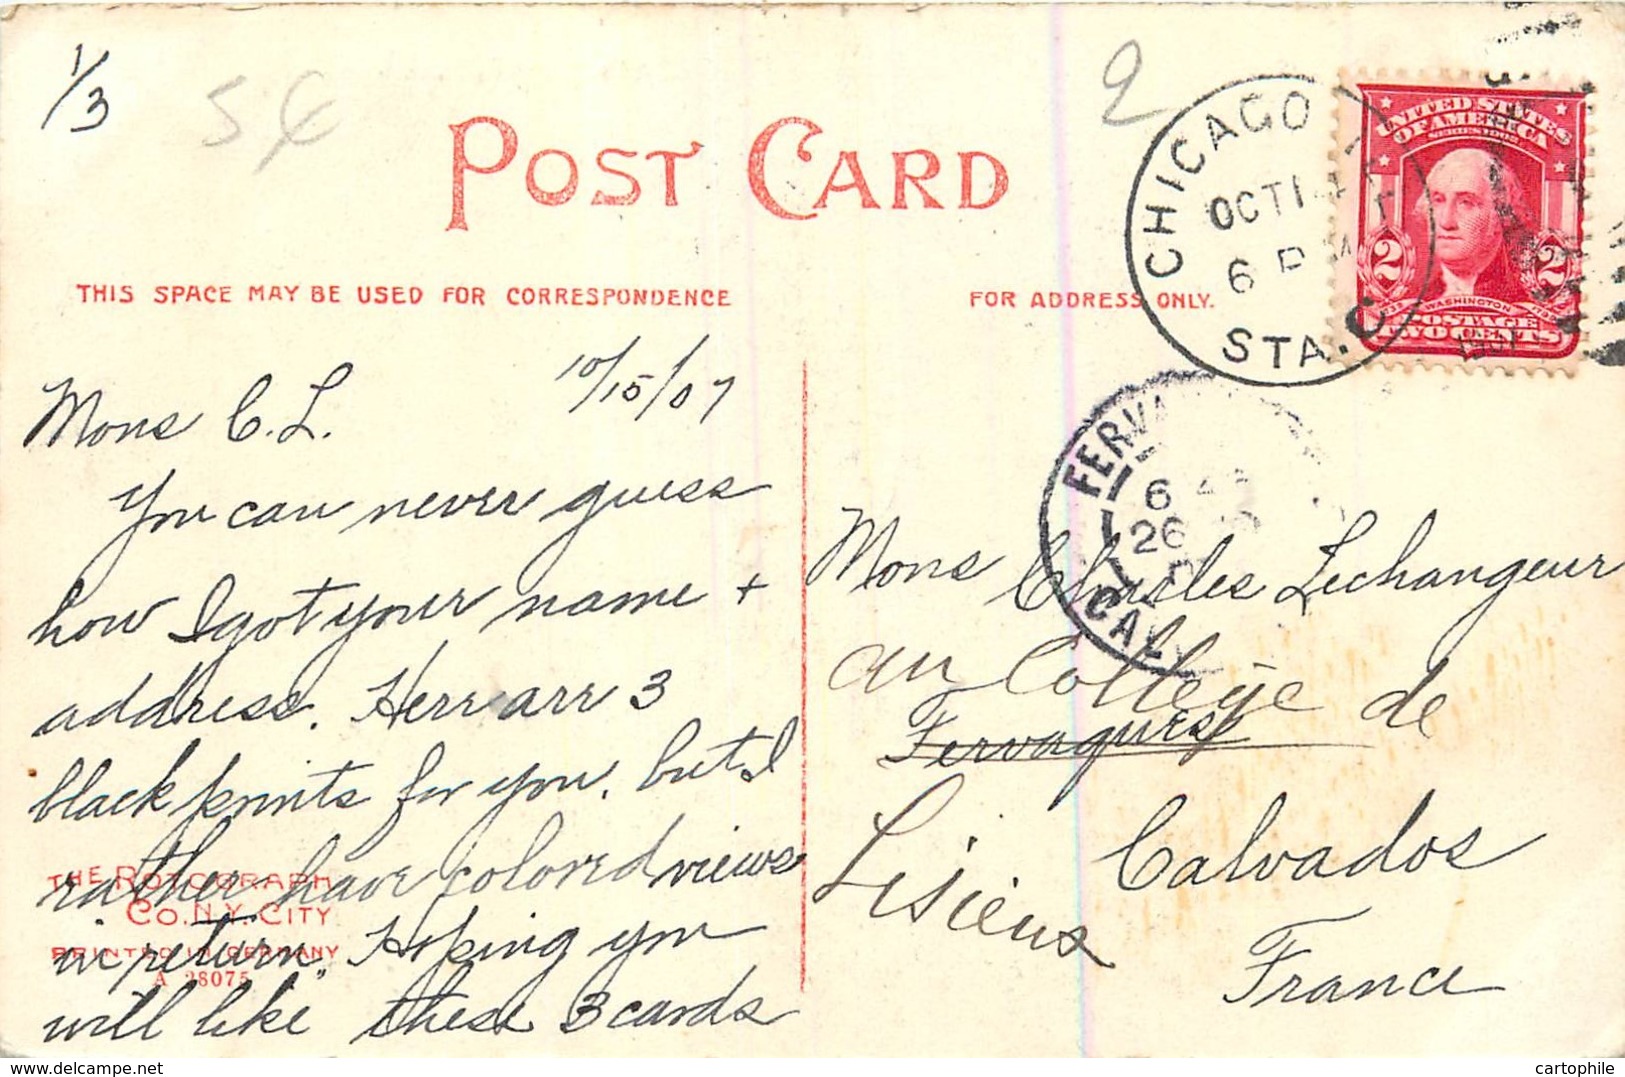 1/3
5
2
POST CARD
THIS SPACE MAY BE USED FOR CORRESPONDENCE
FOR ADDRESS ONLY.
CHICAGO
OCT 14
6 P M
STA. C.
1907
UNITED STATES
OF AMERICA
SERIES 1902
2 2
WASHINGTON
POSTAGE
TWO CENTS
FERVA
6
26
CAL
10/15/07
Mons C.L.
You can never guess
how I got your name +
address. Here are 3
black prints for you, but I
rather have colored views
in return. Hoping you
will like these 3 cards
THE ROTOGRAPH
CO. N.Y. CITY
PRINTED IN GERMANY
A 28075
Mons Charles Lechangeur
au Collège de
Fervaques
Lisieux
Calvados
France
delcampe.net
cartophile